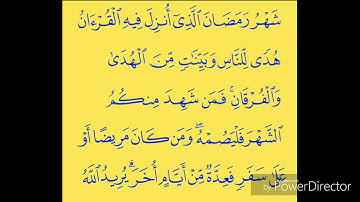 شَهْرُ رَمَضَانَ ٱلَّذِىٓ أُنزِلَ فِيهِ ٱلْقُرْءَانُ
هُدًى لِّلنَّاسِ وَبَيِّنَٰتٍ مِّنَ ٱلْهُدَىٰ
وَٱلْفُرْقَانِ ۚ فَمَن شَهِدَ مِنكُمُ
ٱلشَّهْرَ فَلْيَصُمْهُ ۖ وَمَن كَانَ مَرِيضًا أَوْ
عَلَىٰ سَفَرٍ فَعِدَّةٌ مِّنْ أَيَّامٍ أُخَرَ ۗ يُرِيدُ ٱللَّهُ
PowerDirector